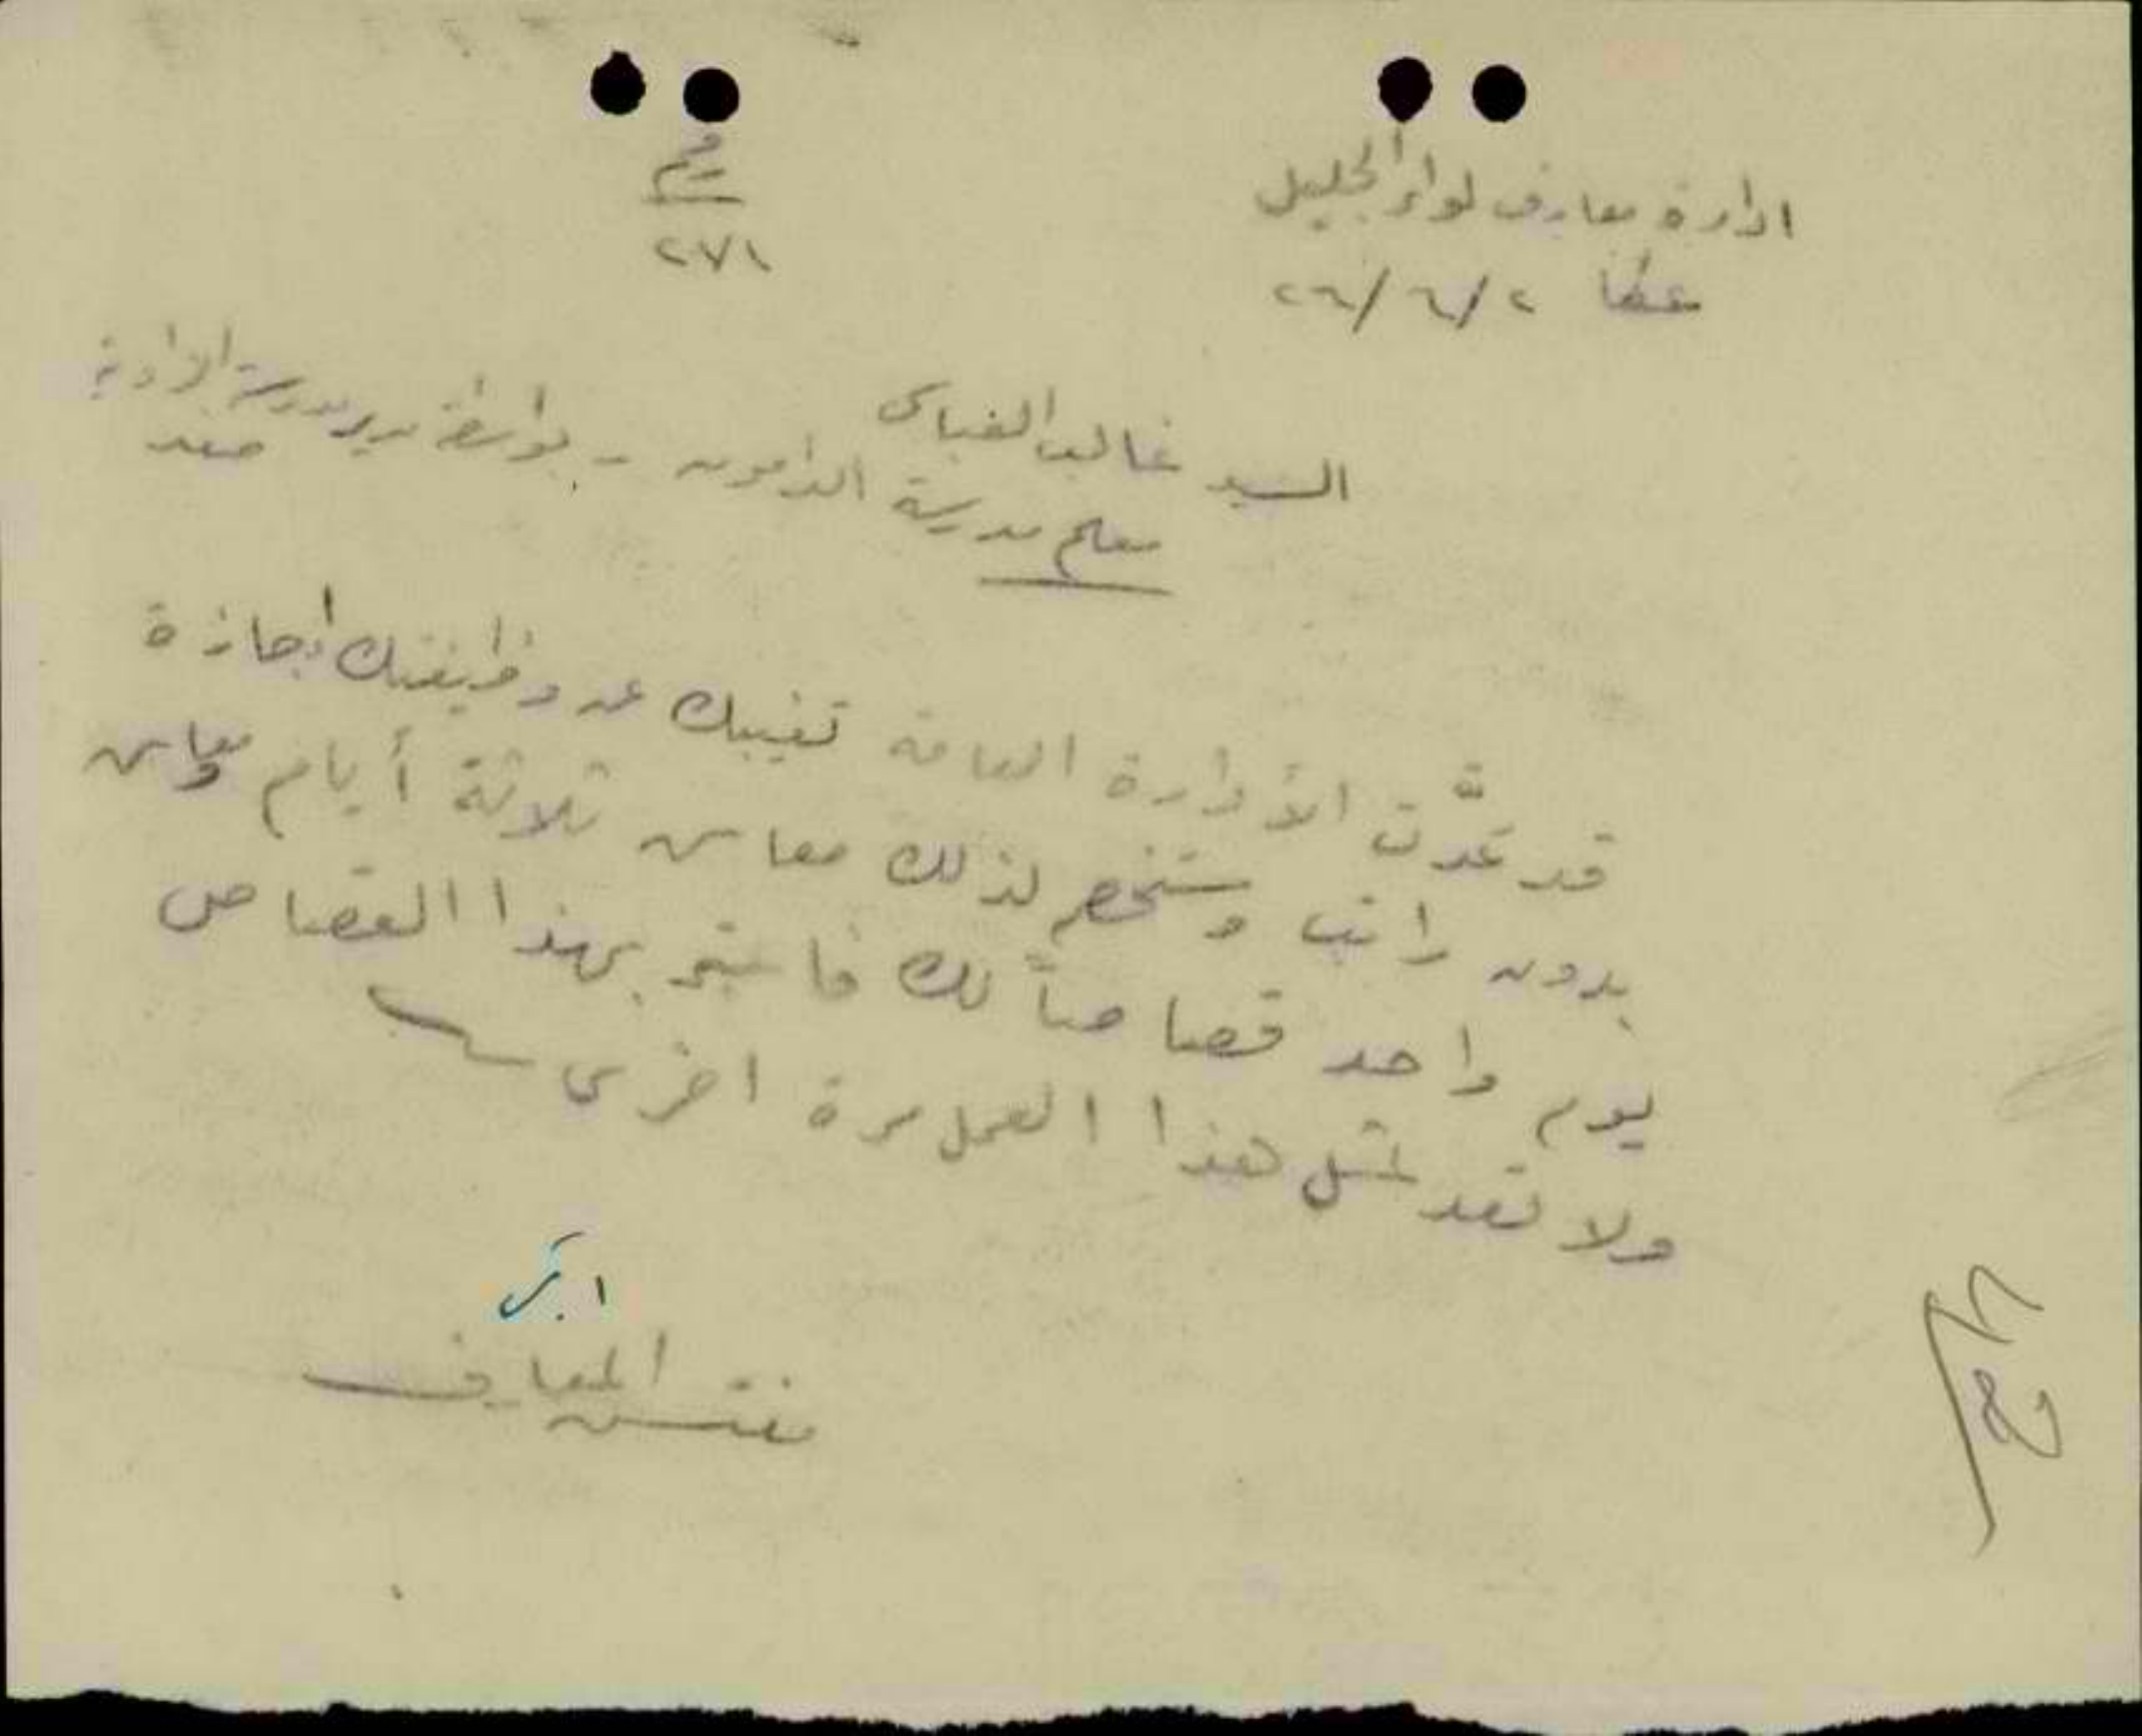 ادارة معارف لواء الجليل
رقم
عكا ٢/٦/٢٦
٢٧١
السيد غالب
معلم مدرسة الدامون - بواسطة مدير مدرسة
صفد
قد عَدَّت الأدارة العامة تغيبك عن وظيفتك اجازة
بدون راتب وستخصم لذلك معاش ثلاثة أيام ومعاش
يوم واحد قصاصاً لك فاعتبر بهذا القصاص
ولا تعد لمثل هذا العمل مرة اخرى
مفتش المعارف